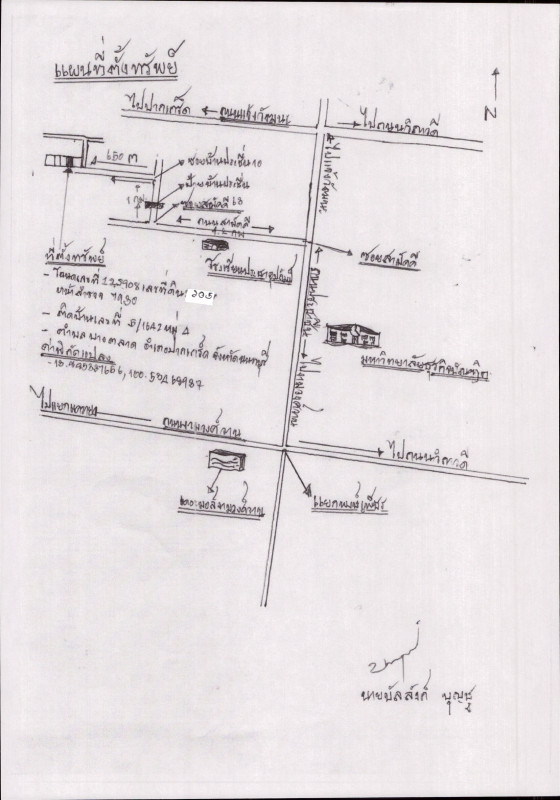 แผนที่ตั้งทรัพย์
N
ไปปากเกร็ด ← ถนนแจ้งวัฒนะ
→ ไปถนนวิภาวดี
ไปแจ้งวัฒนะ
650 ม
ซอยบ้านประชื่น 10
ป้ายบ้านประชื่น
ซอยสามัคคี 63
ถนนสามัคคี
ซอยสามัคคี
โรงเรียนประชาอุปถัมภ์
ที่ตั้งทรัพย์
- โฉนดเลขที่ 125908 เลขที่ดิน 2051
หน้าสำรวจ 7930
- ติดบ้านเลขที่ 5/1642 หมู่ 4
- ตำบล บางตลาด อำเภอปากเกร็ด จังหวัดนนทบุรี
ค่าพิกัดแปลง
ถนนประชาชื่น
ไปงามวงศ์วาน
มหาวิทยาลัยธุรกิจบัณฑิต
ไปแยกแคราย
ถนนงามวงศ์วาน
→ ไปถนนวิภาวดี
เดอะมอลล์งามวงศ์วาน
แยกพงษ์เพชร
นายบัลลังก์ บุญชู